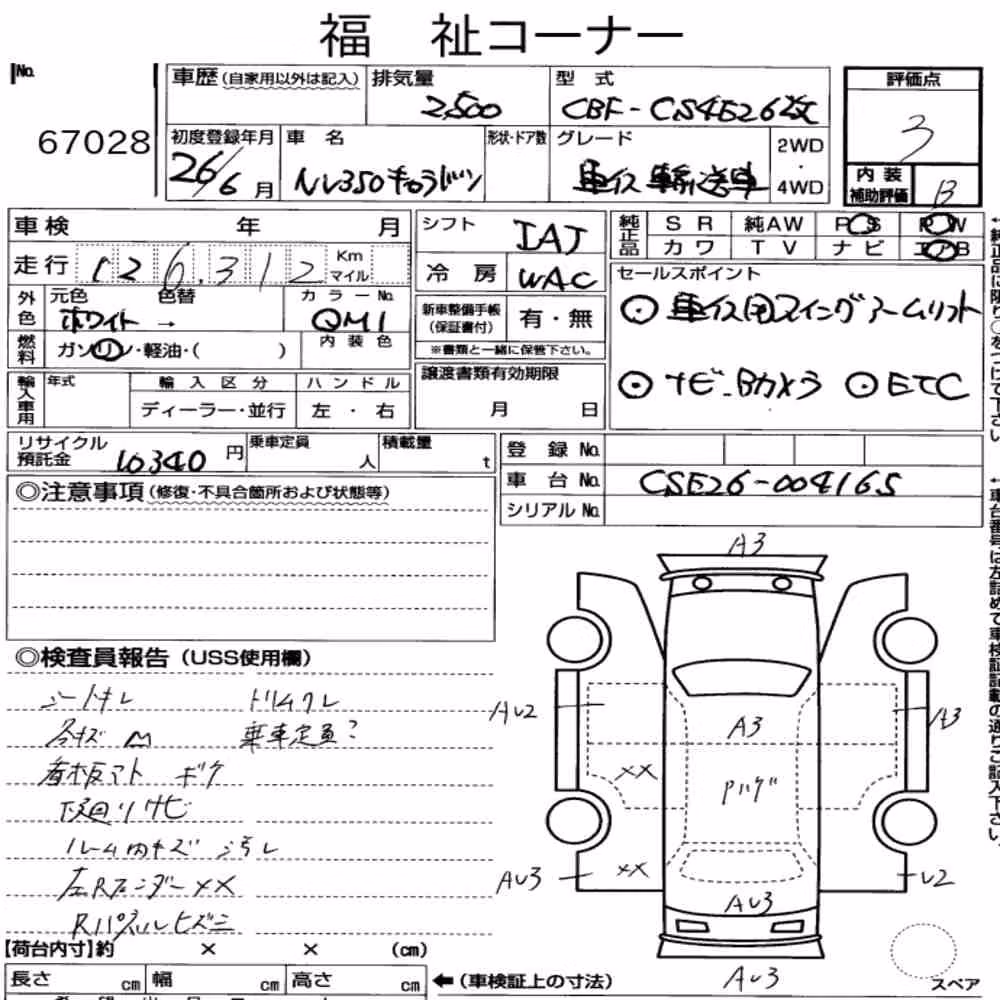 福 祉コーナー
No.
67028
車歴(自家用以外は記入)
排気量
2,500
型 式
CBF-CS4E26改
評価点
3
初度登録年月
26/6月
車 名
NV350キャラバン
形状・ドア数
グレード
車イス輸送車
2WD
・
4WD
内 装
補助評価
B
車検 年 月
走行 126,312 Km
マイル
シフト
IAT
冷 房
WAC
純正品
SR 純AW PS PW
カワ TV ナビ エアB
セールスポイント
⊙車イス用スイングアームリフト
⊙ナビ-Bカメラ ⊙ETC
外色
元色 色替
ホワイト→
カラーNo.
QM1
燃料
ガソリン・軽油・( )
内装色
新車整備手帳
(保証書付)
有・無
※書類と一緒に保管下さい。
譲渡書類有効期限
月 日
輸入車用
年式
輸入区分
ハンドル
ディーラー・並行
左・右
リサイクル
預託金
10340円
乗車定員
人
積載量
t
登 録 No.
車 台 No.
CSE26-004165
シリアル No.
◎注意事項(修復・不具合箇所および状態等)
◎検査員報告(USS使用欄)
シートキレ ドリムクレ
各キズ 凹 乗車定員?
看板アト ボケ
下廻りサビ
ルーム内キズ 汚レ
左Rフェンダー××
Rパネルヒズミ
【荷台内寸】約 × × (cm)
長さ cm 幅 cm 高さ cm
←(車検証上の寸法)
A3
AU2
A3
A3
××
Pハゲ
AU3
××
U2
AU3
AU3
スペア
←純正品に限り○をつけて下さい
←車台番号は左詰めで車検証記載の通りご記入下さい。